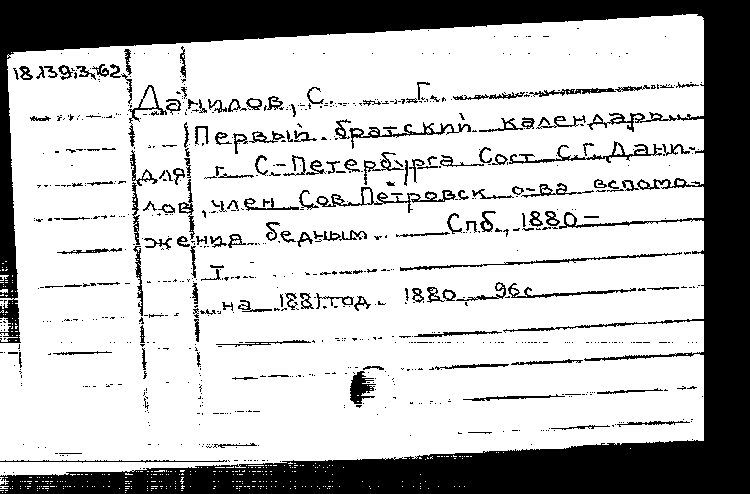 18.139.3.62.
Данилов, С. Г.
Первый братский календарь...
для г. С-Петербурга. Сост С.Г. Дани-
лов, член Сов. Петровск о-ва вспомо-
жения бедным. Спб., 1880-
т.
...на 1881 год. 1880, 96с